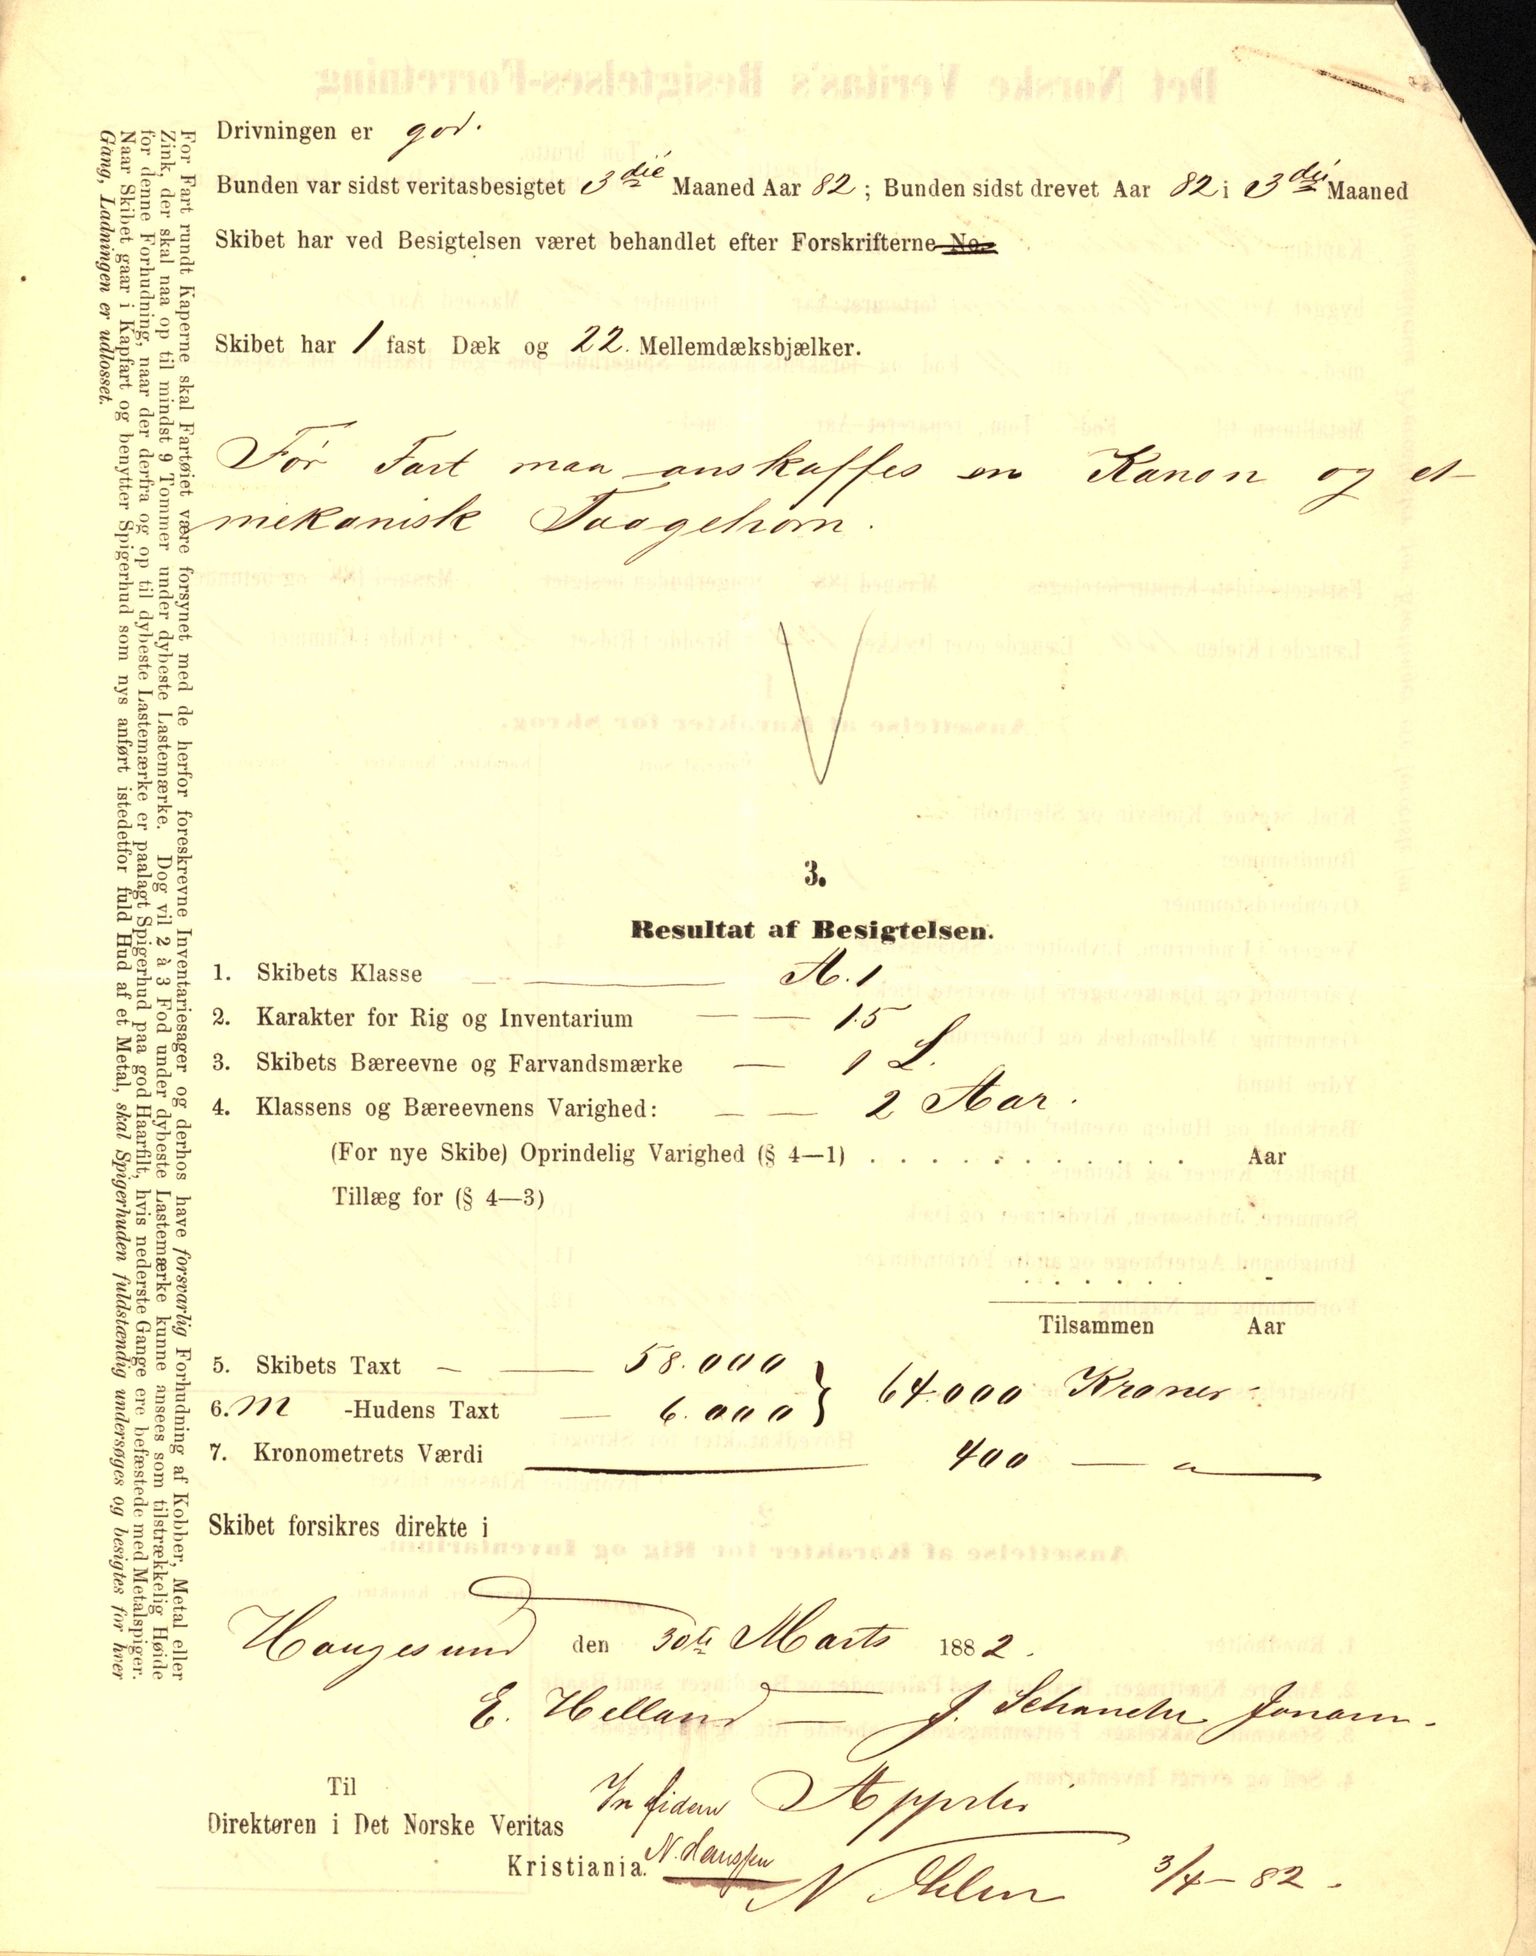 Drivningen er god.
Bunden var sidst veritasbesigtet 3die Maaned Aar 82; Bunden sidst drevet Aar 82 i 3die Maaned
Skibet har ved Besigtelsen været behandlet efter Forskrifterne No.
Skibet har 1 fast Dæk og 22. Mellemdæksbjælker.
Før Fart maa anskaffes en Kanon og et
mekanisk Taagehorn.
3.
Resultat af Besigtelsen.
1. Skibets Klasse A.1
2. Karakter for Rig og Inventarium 1.5
3. Skibets Bæreevne og Farvandsmærke 1 L.
4. Klassens og Bæreevnens Varighed: 2 Aar.
(For nye Skibe) Oprindelig Varighed (§ 4—1) . . . . . . . . . . . Aar
Tillæg for (§ 4—3)
. . . . . . -
Tilsammen Aar
5. Skibets Taxt — 58.000
6. M -Hudens Taxt — 6.000 } 64.000 Kroner
7. Kronometrets Værdi 400 — "
Skibet forsikres direkte i
Haugesund den 30te Marts 1882.
E. Helland — J. Schanche Jonasn.
Til
Direktøren i Det Norske Veritas
Kristiania.
In fidem
N. Hanssen
3/4 - 82.
For Fart rundt Kaperne skal Fartøiet være forsynet med de herfor foreskrevne Inventariesager og derhos have forsvarlig Forhudning af Kobber, Metal eller
Zink, der skal naa op til mindst 9 Tommer under dybeste Lastemærke. Dog vil 2 à 3 Fod under dybeste Lastemærke kunne ansees som tilstrækkelig Høide
for denne Forhudning, naar der derfra og op til dybeste Lastemærke er paalagt Spigerhud paa god Haarfilt, hvis nederste Gange ere befæstede med Metalspiger.
Naar Skibet gaar i Kapfart og benytter Spigerhud som nys anført istedetfor fuld Hud af et Metal, skal Spigerhuden fuldstændig undersøges og besigtes for hver
Gang, Ladningen er udlosset.